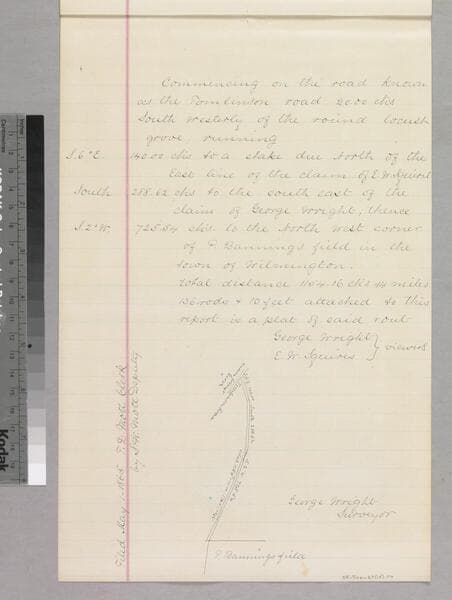 Commencing on the road known
as the Tomlinson road 20.00 chs
South Westerly of the round locust
grove running
S. 6° E. 140.00 chs to a stake due North of the
East line of the claim of E. W. Squires
South 288.62 chs to the south east of the
claim of George Wright; thence
S. 2° W. 725.54 chs. to the North West corner
of P. Bannings field in the
town of Wilmington.
Total distance 1154.16 chs 14 miles
136 rods & 10 feet attached to this
report is a plat of said rout
George Wright
E. W. Squires } viewers
Filed May 1, 1865 T. D. Mott Clerk
by S. W. Mott Deputy
George Wright
Surveyor
P. Bannings field
Kodak